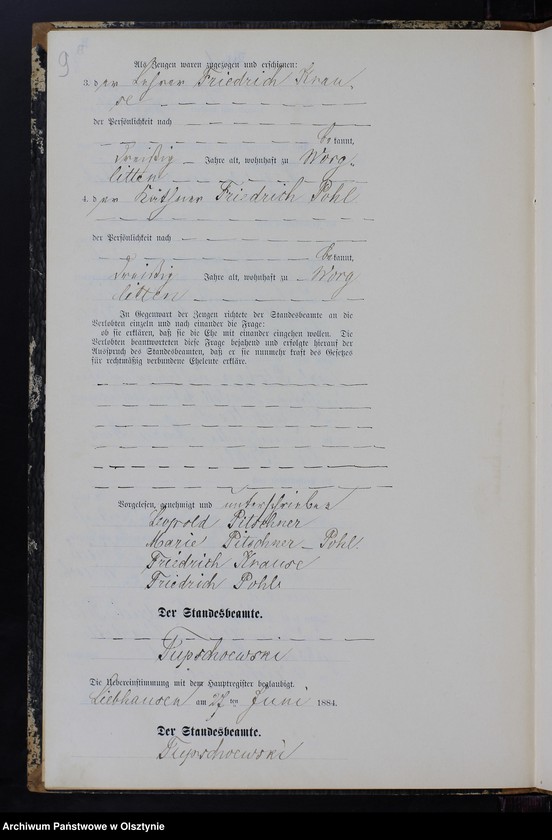 9
Als Zeugen waren zugezogen und erschienen:
3. der Lehrer Friedrich Krau-
se
der Persönlichkeit nach
bekannt,
dreißig Jahre alt, wohnhaft zu Worg-
litten
4. der Käthner Friedrich Pohl
der Persönlichkeit nach
bekannt,
dreißig Jahre alt, wohnhaft zu Worg
litten
In Gegenwart der Zeugen richtete der Standesbeamte an die
Verlobten einzeln und nach einander die Frage:
ob sie erklären, daß sie die Ehe mit einander eingehen wollen. Die
Verlobten beantworteten diese Frage bejahend und erfolgte hierauf der
Ausspruch des Standesbeamten, daß er sie nunmehr kraft des Gesetzes
für rechtmäßig verbundene Eheleute erkläre.
Vorgelesen, genehmigt und unterschrieben
Leopold Pitschner
Marie Pitschner - Pohl
Friedrich Krause
Friedrich Pohl
Der Standesbeamte.
Die Uebereinstimmung mit dem Hauptregister beglaubigt.
Liebhausen am 27 ten Juni 1884.
Der Standesbeamte.
Archiwum Państwowe w Olsztynie